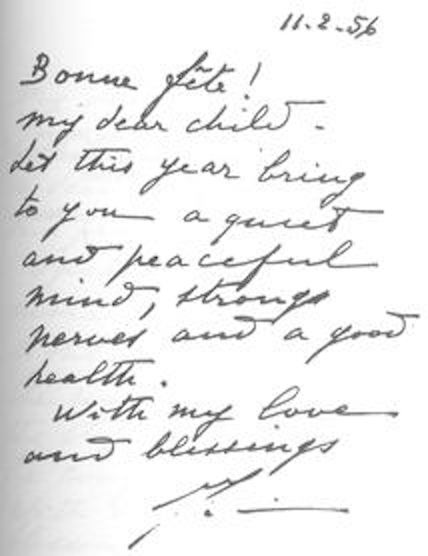 11-2-56
Bonne fête!
my dear child -
Let this year bring
to you a quiet
and peaceful
mind, strong
nerves and a good
health.
With my love
and blessings